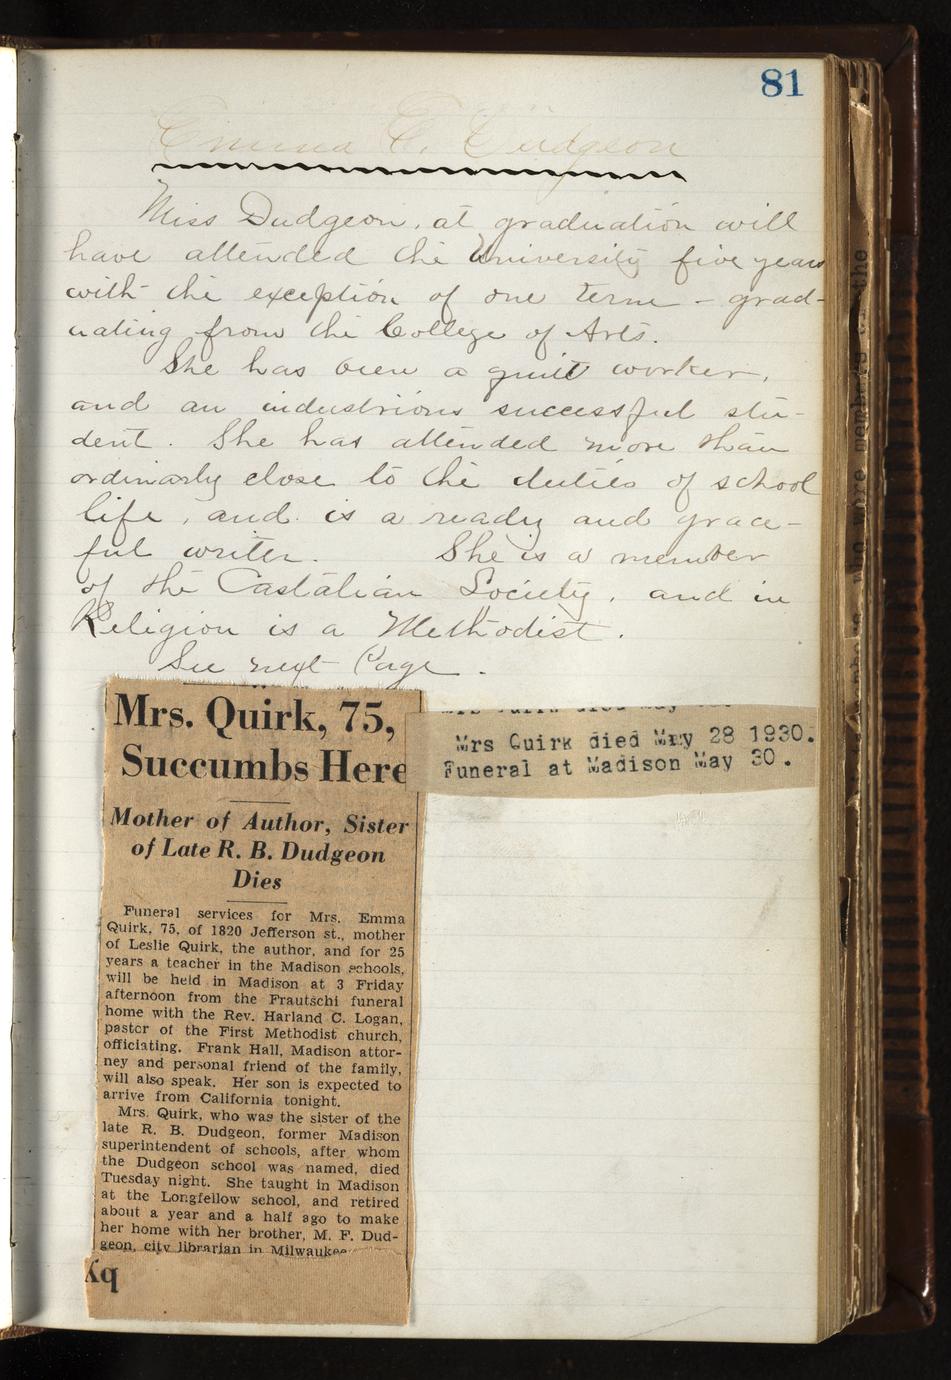 81
Emma C. Dudgeon
Miss Dudgeon, at graduation will
have attended the University five years
with the exception of one term - grad-
uating from the College of Arts.
She has been a quiet worker,
and an industrious successful stu-
dent. She has attended more than
ordinarly close to the duties of school
life, and is a ready and grace-
ful writer. She is a member
of the Castalian Society, and in
Religion is a Methodist.
See next Page.
Mrs. Quirk, 75,
Succumbs Here
Mother of Author, Sister
of Late R. B. Dudgeon
Dies
Funeral services for Mrs. Emma
Quirk, 75, of 1820 Jefferson st., mother
of Leslie Quirk, the author, and for 25
years a teacher in the Madison schools,
will be held in Madison at 3 Friday
afternoon from the Frautschi funeral
home with the Rev. Harland C. Logan,
pastor of the First Methodist church,
officiating. Frank Hall, Madison attor-
ney and personal friend of the family,
will also speak. Her son is expected to
arrive from California tonight.
Mrs. Quirk, who was the sister of the
late R. B. Dudgeon, former Madison
superintendent of schools, after whom
the Dudgeon school was named, died
Tuesday night. She taught in Madison
at the Longfellow school, and retired
about a year and a half ago to make
her home with her brother, M. F. Dud-
geon, city librarian in Milwaukee
by
Mrs Quirk died May 28 1930.
Funeral at Madison May 30.
who were members of the